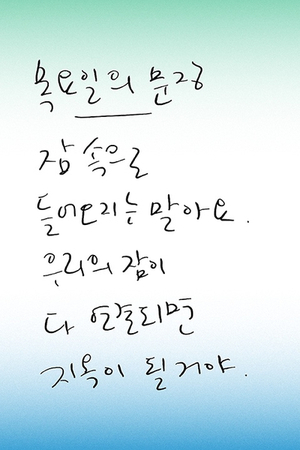 목요일의 문장
잠 속으로
들어오지는 말아요.
우리의 잠이
다 연결되면
지옥이 될 거야.